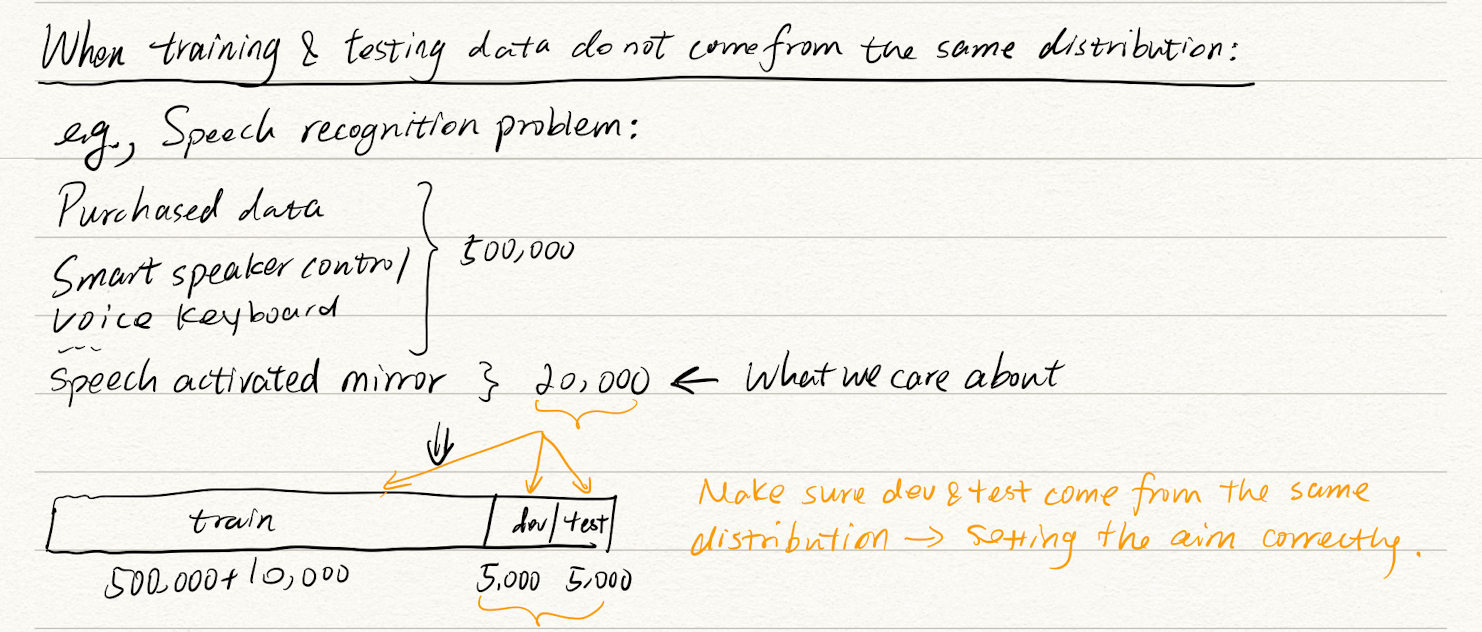 When training & testing data do not come from the same distribution:
e.g., Speech recognition problem:
Purchased data
Smart speaker control
voice keyboard
} 500,000
Speech activated mirror } 20,000 ← What we care about
train dev test
500,000+10,000 5,000 5,000
Make sure dev & test come from the same
distribution → Setting the aim correctly.